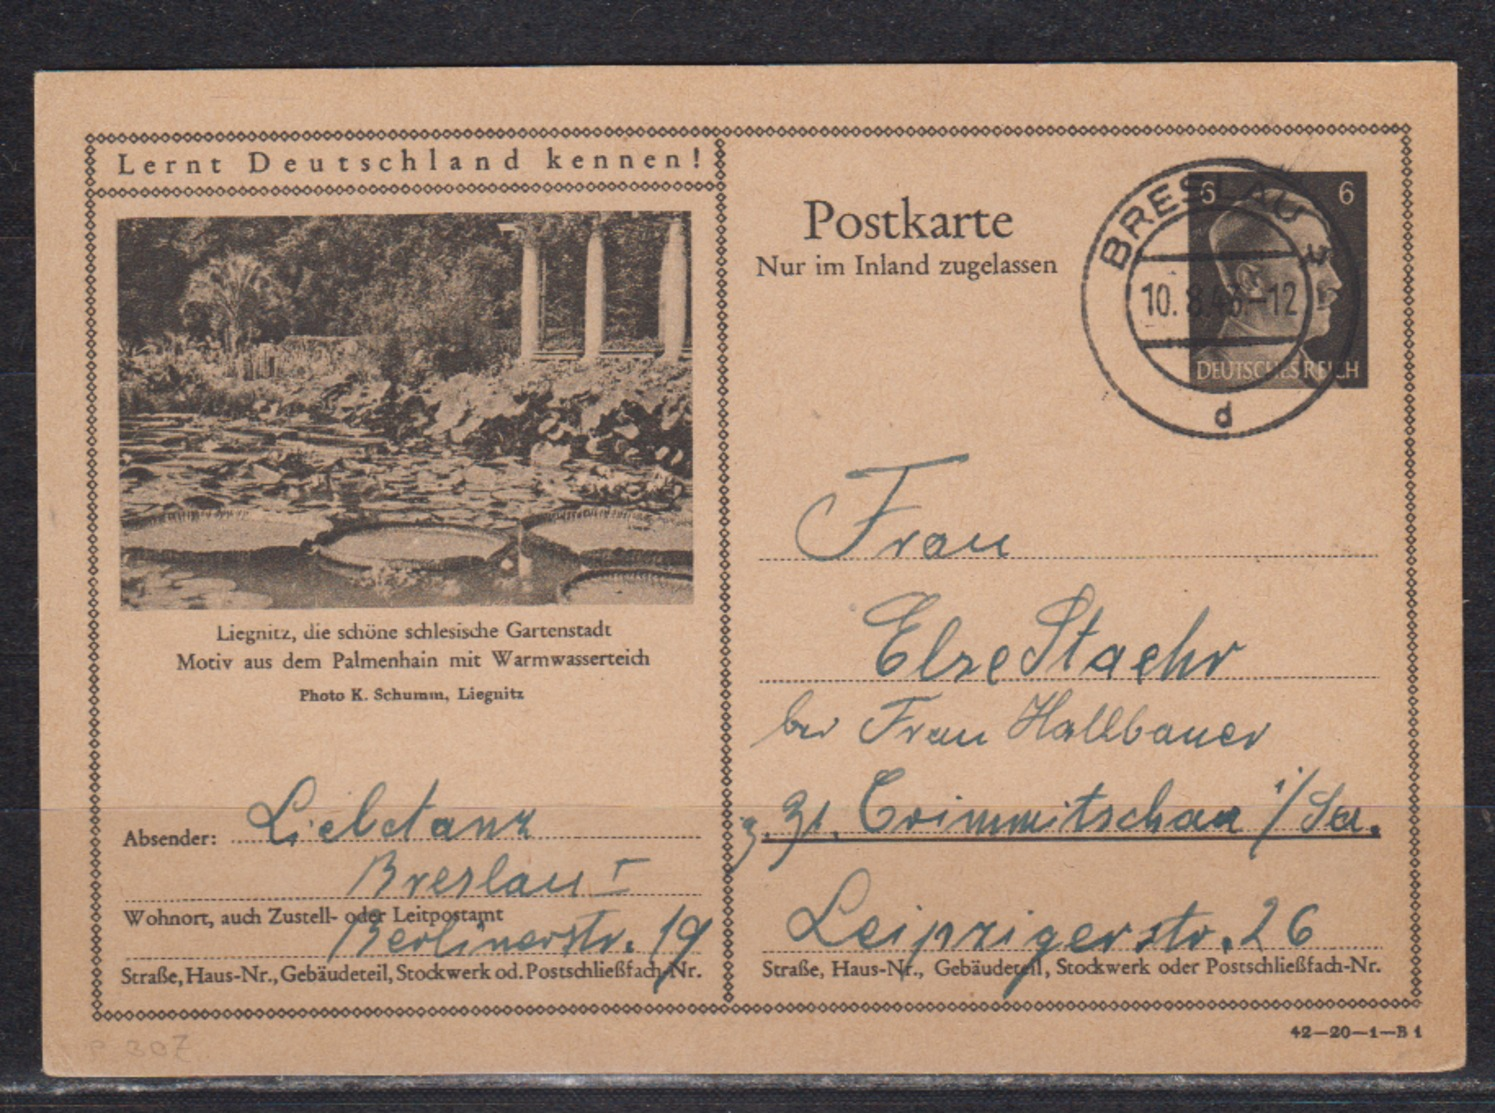 Lernt Deutschland kennen!
Liegnitz, die schöne schlesische Gartenstadt
Motiv aus dem Palmenhain mit Warmwasserteich
Photo K. Schumm, Liegnitz
Absender: Liebetanz
Breslau I
Wohnort, auch Zustell- oder Leitpostamt
Berlinerstr. 19
Straße, Haus-Nr., Gebäudeteil, Stockwerk od. Postschließfach-Nr.
Postkarte
Nur im Inland zugelassen
6 6
DEUTSCHES REICH
BRESLAU 5
10. 8. -12
d
Frau
Else Staehr
bei Frau Hallbauer
z. Zt. Crimmitschau i/Sa.
Leipzigerstr. 26
Straße, Haus-Nr., Gebäudeteil, Stockwerk oder Postschließfach-Nr.
42—20—1—B 1